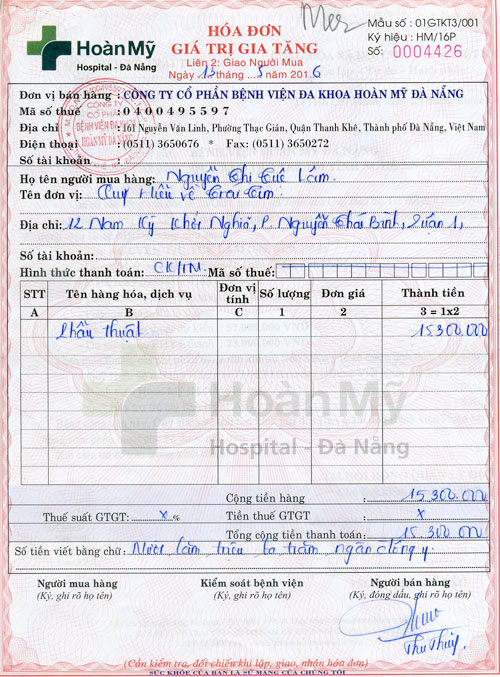 Mer
HÓA ĐƠN
GIÁ TRỊ GIA TĂNG
Liên 2: Giao Người Mua
Ngày 13 tháng ... 5 năm 2016
Mẫu số : 01GTKT3/001
Ký hiệu : HM/16P
Số: 0004426
Hoàn Mỹ
Hospital - Đà Nẵng
Đơn vị bán hàng : CÔNG TY CỔ PHẦN BỆNH VIỆN ĐA KHOA HOÀN MỸ ĐÀ NẴNG
Mã số thuế : 0400495597
Địa chỉ : 161 Nguyễn Văn Linh, Phường Thạc Gián, Quận Thanh Khê, Thành phố Đà Nẵng, Việt Nam
Điện thoại : (0511) 3650676 * Fax: (0511) 3650272
Số tài khoản :
CÔNG TY
CỔ PHẦN
BỆNH VIỆN ĐA KHOA
HOÀN MỸ ĐÀ NẴNG
Họ tên người mua hàng: Nguyễn Thị Cúc Lắm
Tên đơn vị: Quỹ Hiểu về Trái Tim
Địa chỉ: 12 Nam Kỳ Khởi Nghĩa, P. Nguyễn Thái Bình, Quận 1,
Số tài khoản:
Hình thức thanh toán: CK/TM Mã số thuế:
STT Tên hàng hóa, dịch vụ Đơn vị tính Số lượng Đơn giá Thành tiền
A B C 1 2 3 = 1x2
Phẫu thuật 15.300.000
Hoàn Mỹ
Hospital - Đà Nẵng
Cộng tiền hàng : 15.300.000
Thuế suất GTGT: x % Tiền thuế GTGT : x
Tổng cộng tiền thanh toán: 15.300.000
Số tiền viết bằng chữ : Mười lăm triệu ba trăm ngàn đồng y.
Người mua hàng Kiểm soát bệnh viện Người bán hàng
(Ký, ghi rõ họ tên) (Ký, ghi rõ họ tên) (Ký, đóng dấu, ghi rõ họ tên)
Thu Thủy
(Cần kiểm tra, đối chiếu khi lập, giao, nhận hóa đơn)
SỨC KHỎE CỦA BẠN LÀ SỨ MẠNG CỦA CHÚNG TÔI